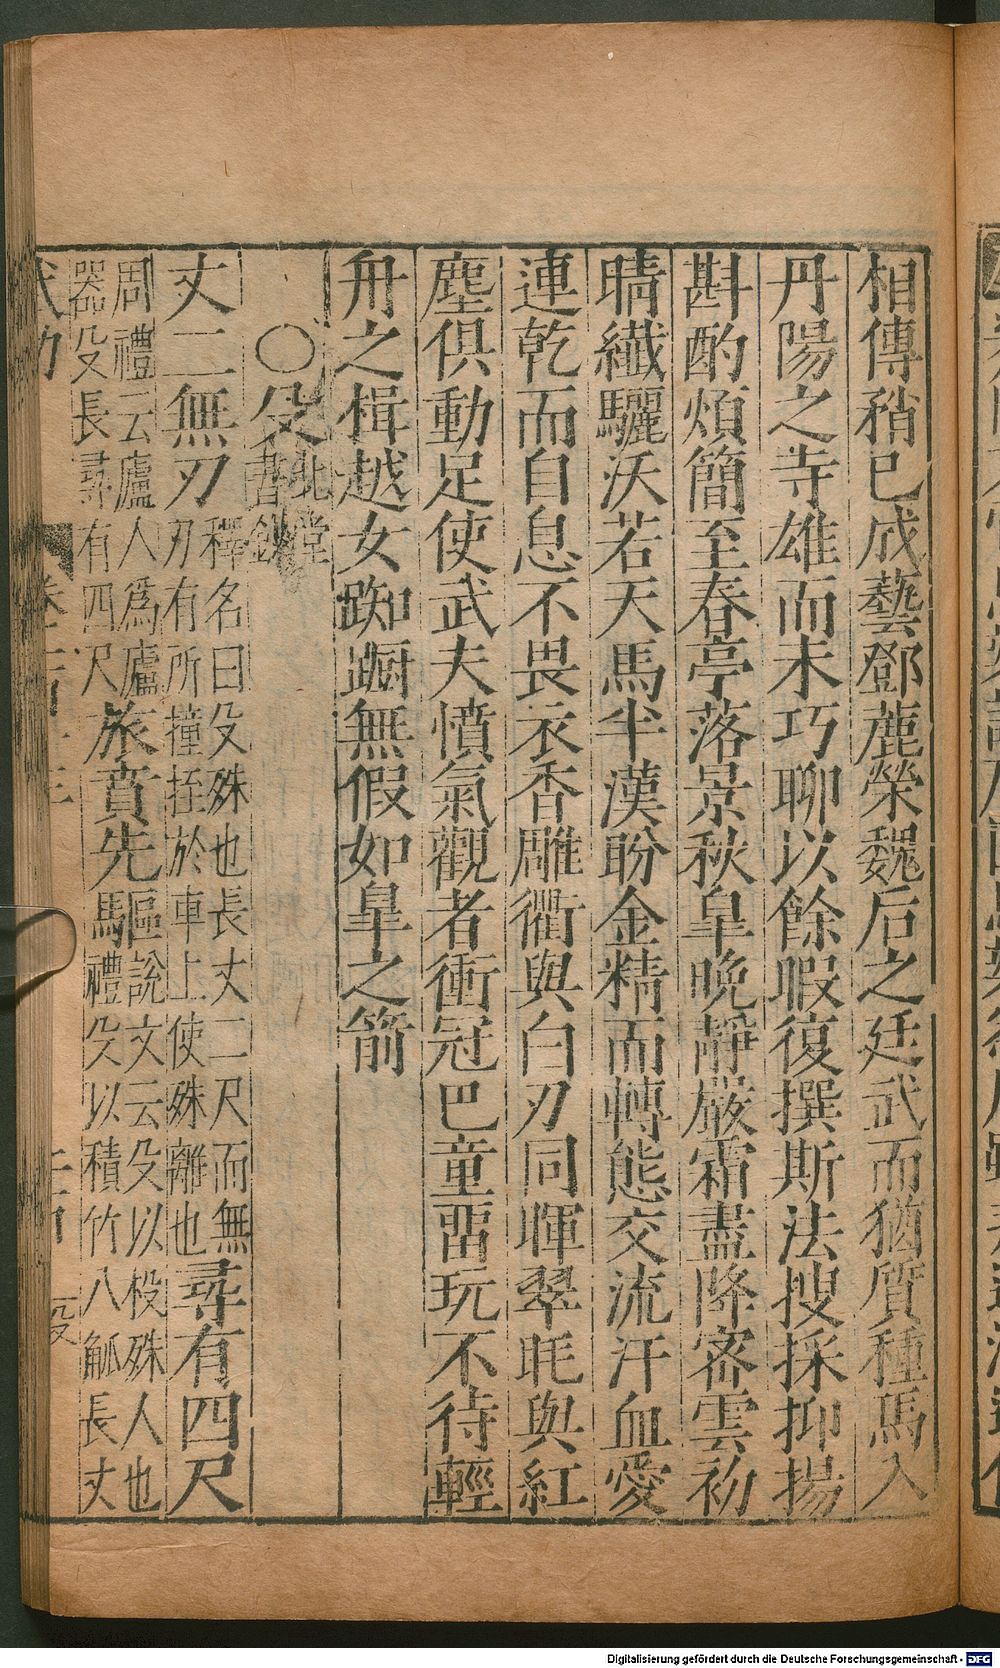 相傳矟已成藝鄧蔍榮魏后之廷武而猶質種馬入
丹陽之寺雄而未巧聊以餘暇復撰斯法搜採抑揚
斟酌煩簡至春亭落景秋皐晚靜嚴霜盡降密雲初
晴纖驪沃若天馬半漢盼金精而轉態交流汗血愛
連乾而自息不畏衣香雕衢與白刃同暉翠毦與紅
塵俱動足使武夫憤氣觀者衝冠巴童留玩不待輕
舟之楫越女踟蹰無假如皐之箭
〇殳北堂書鈔
丈二無刃釋名曰殳殊也長丈二尺而無刃有所撞挃於車上使殊離也尋有四尺
周禮云廬人爲廬器殳長尋有四尺旅賁先驅說文云殳以杸殊人也馬禮殳以積竹八觚長丈
武功
卷
殳
Digitalisierung gefördert durch die Deutsche Forschungsgemeinschaft - DFG